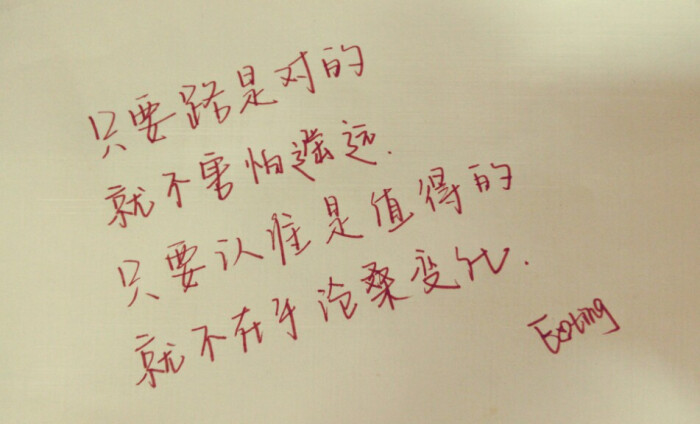 只要路是对的
就不害怕遥远.
只要认准是值得的
就不在乎沧桑变化.